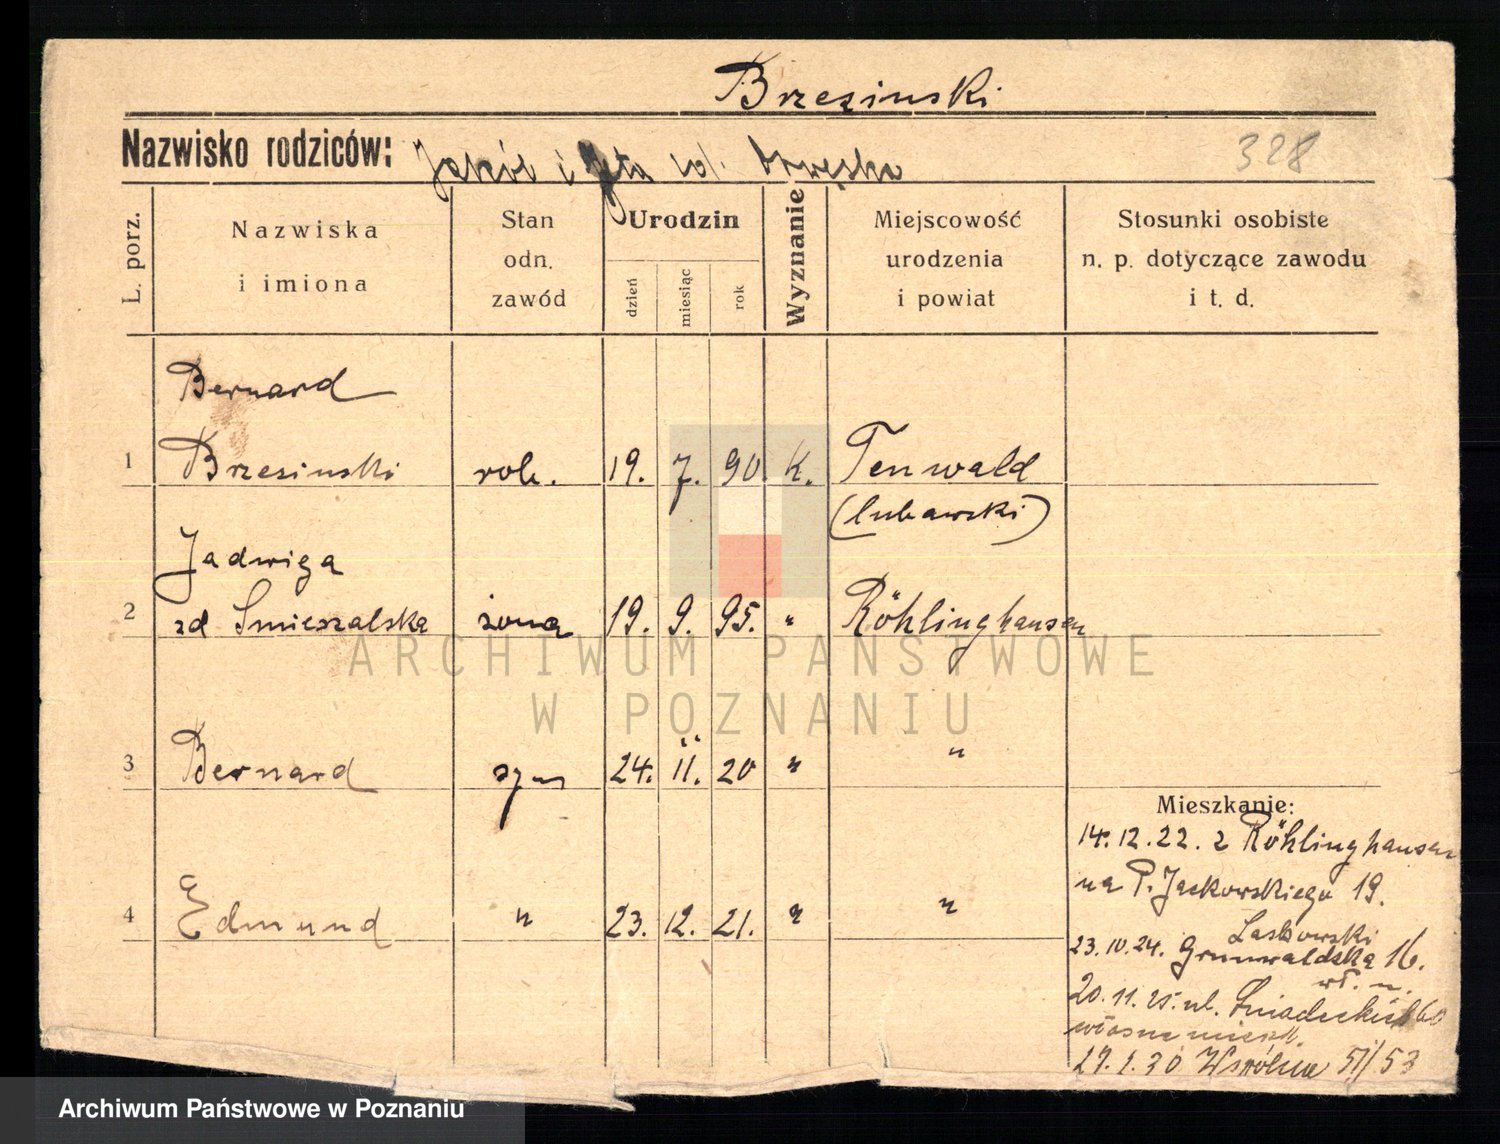 Brzezinski
Nazwisko rodziców: Jakób i
328
L. porz.
Nazwiska
i imiona
Stan
odn.
zawód
Urodzin
dzień
miesiąc
rok
Wyznanie
Miejscowość
urodzenia
i powiat
Stosunki osobiste
n. p. dotyczące zawodu
i t. d.
Bernard
1 Brzesinski rob. 19. 7. 90 K. Tenwald
(lubawski)
Jadwiga
2 zd Smieszalska żona 19. 9. 95. " Röhlinghausen
3 Bernard syn 24. 11. 20 " "
4 Edmund " 23. 12. 21. " "
Mieszkanie:
14.12.22. z Röhlinghausen
na P. Jackowskiego 19.
Laskowski
23.10.24. Grunwaldska 16.
20.11.25. ul. Śniadeckich 60
własne mieszk.
27.1.30 Wspólna 51/53
ARCHIWUM PAŃSTWOWE
W POZNANIU
Archiwum Państwowe w Poznaniu